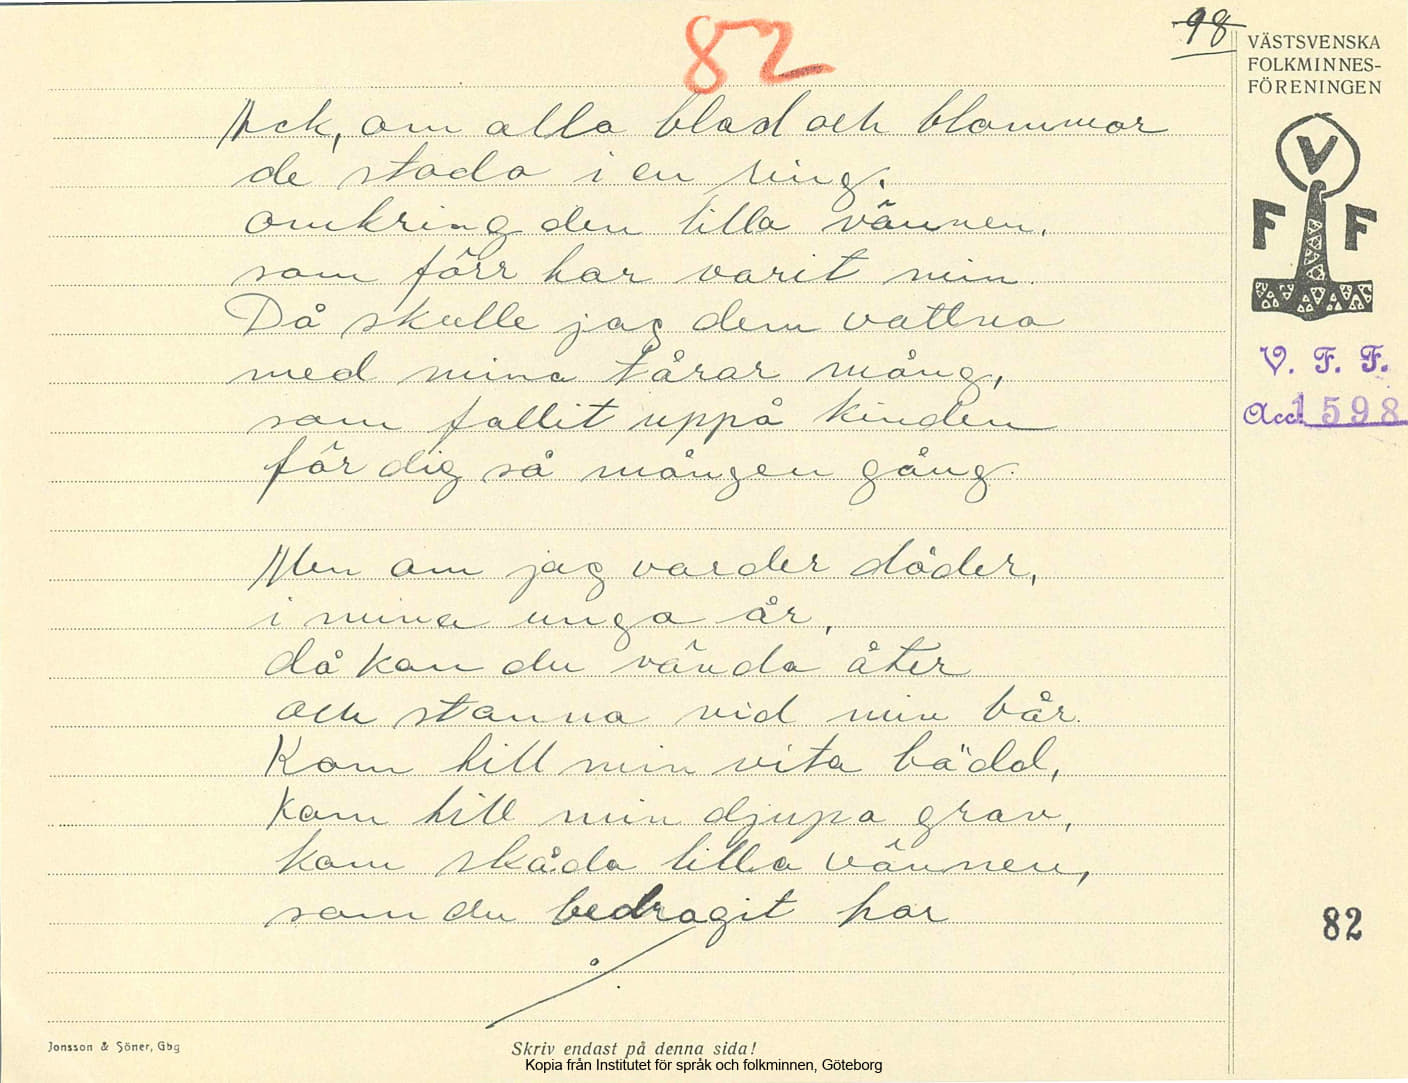 82
98
VÄSTSVENSKA
FOLKMINNES-
FÖRENINGEN
V
F F
V. F. F.
Acc. 1598
Ack, om alla blad och blommor
de stodo i en ring.
omkring den lilla vännen,
som förr har varit min.
Då skulle jag dem vattna
med mina tårar mång,
som fallit uppå kinden
för dig så mången gång.
Men om jag varder döder,
i mina unga år,
då kan du vända åter
och stanna vid min bår.
Kom till min vita bädd,
kom till min djupa grav,
kom skåda lilla vännen,
som du bedragit har
82
Jonsson & Söner, Gbg
Skriv endast på denna sida!
Kopia från Institutet för språk och folkminnen, Göteborg